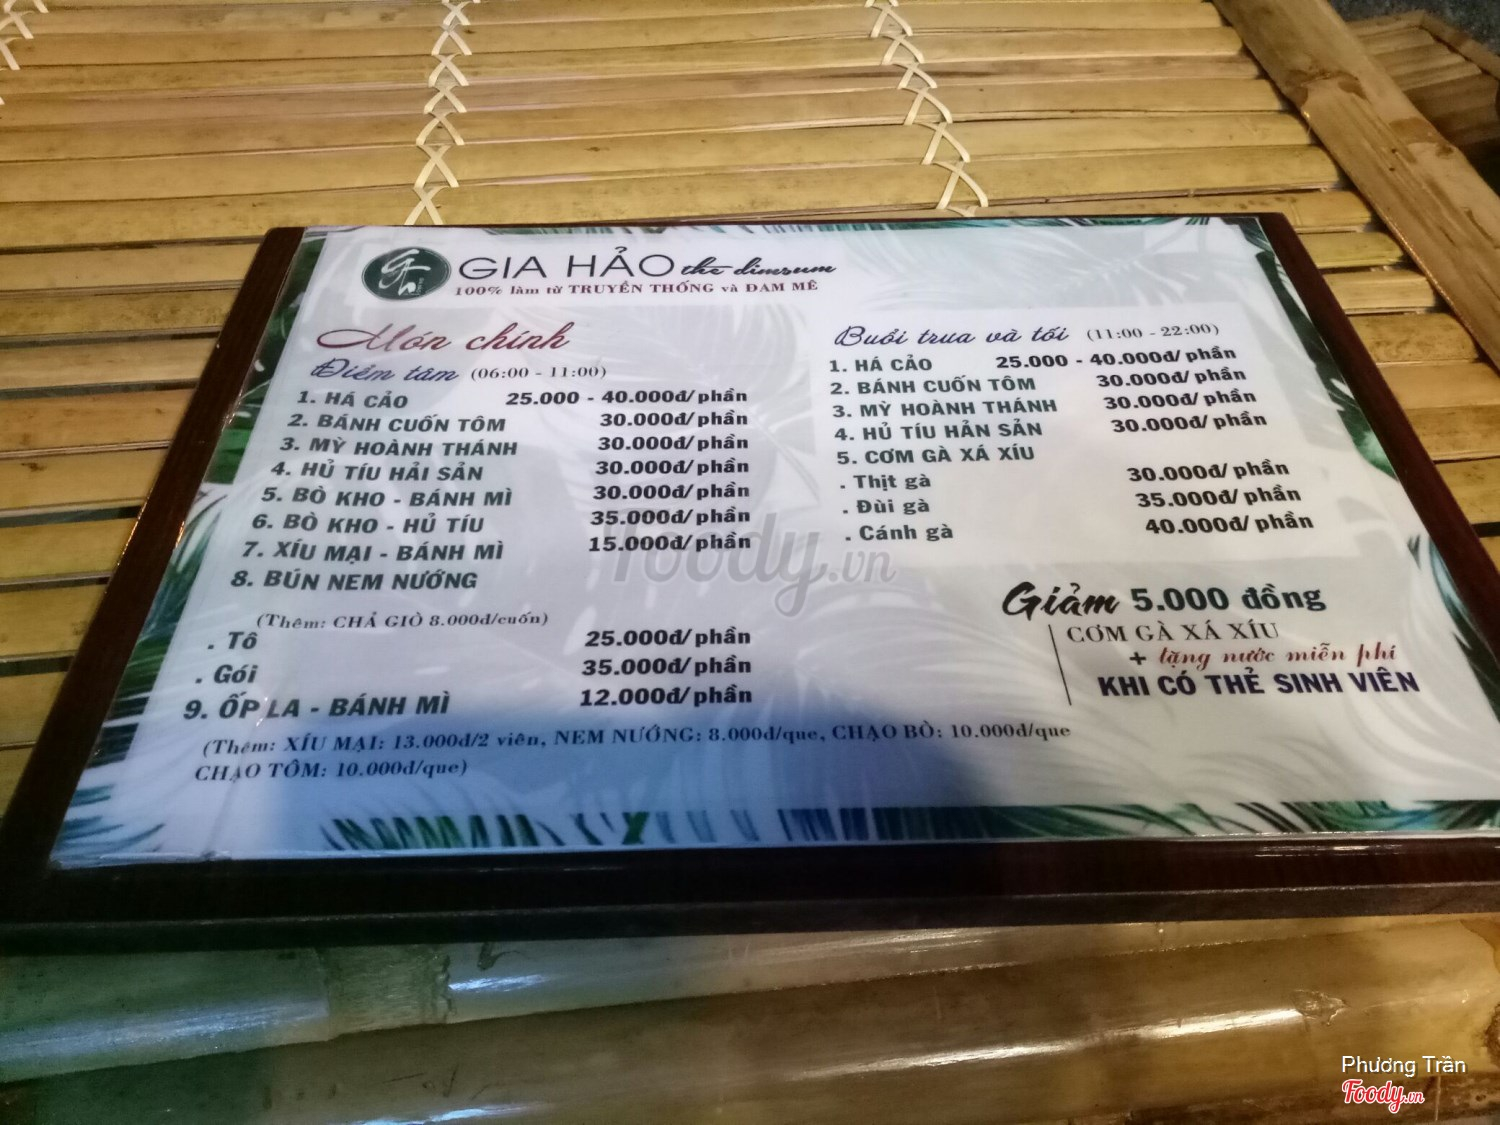 GIA HẢO the dimsum
100% làm từ TRUYỀN THỐNG và ĐAM MÊ
Món chính
Điểm tâm (06:00 - 11:00)
1. HÁ CẢO 25.000 - 40.000đ/phần
2. BÁNH CUỐN TÔM 30.000đ/phần
3. MỲ HOÀNH THÁNH 30.000đ/phần
4. HỦ TÍU HẢI SẢN 30.000đ/phần
5. BÒ KHO - BÁNH MÌ 30.000đ/phần
6. BÒ KHO - HỦ TÍU 35.000đ/phần
7. XÍU MẠI - BÁNH MÌ 15.000đ/phần
8. BÚN NEM NƯỚNG
(Thêm: CHẢ GIÒ 8.000đ/cuốn)
. Tô 25.000đ/phần
. Gói 35.000đ/phần
9. ỐP LA - BÁNH MÌ 12.000đ/phần
(Thêm: XÍU MẠI: 13.000đ/2 viên, NEM NƯỚNG: 8.000đ/que, CHẠO BÒ: 10.000đ/que
CHẠO TÔM: 10.000đ/que)
Buổi trưa và tối (11:00 - 22:00)
1. HÁ CẢO 25.000 - 40.000đ/phần
2. BÁNH CUỐN TÔM 30.000đ/phần
3. MỲ HOÀNH THÁNH 30.000đ/phần
4. HỦ TÍU HẢN SẢN 30.000đ/phần
5. CƠM GÀ XÁ XÍU
. Thịt gà 30.000đ/phần
. Đùi gà 35.000đ/phần
. Cánh gà 40.000đ/phần
Giảm 5.000 đồng
CƠM GÀ XÁ XÍU
+ tặng nước miễn phí
KHI CÓ THẺ SINH VIÊN
Foody.vn
Phương Trần
Foody.vn